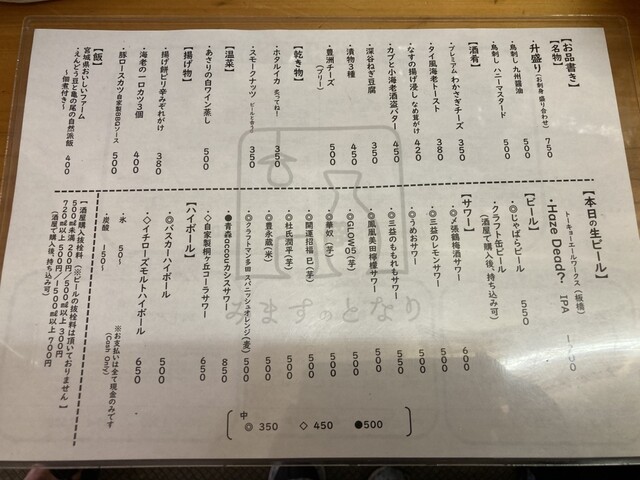 【お品書き】
【名物】
・升盛り(お刺身盛り合わせ) 750
・鳥刺し 九州醤油 500
・鳥刺し ハニーマスタード 500
【酒肴】
・プレミアムわかさぎチーズ 350
・タイ風海老トースト 380
・なすの揚げ浸し なめ茸がけ 420
・カブと小海老酒盗バター 450
・深谷ねぎ豆腐 350
・漬物3種 450
・豊洲チーズ 500
(ブリー)
【乾き物】
・ホタルイカ 炙ってねー 350
・スモークナッツ 350
【温菜】
・あさりの白ワイン蒸し 500
【揚げ物】
・揚げ餅ピリ辛みぞれがけ 380
・海老の一口カツ3個 400
・豚ロースカツ 自家製BBQソース 500
【飯】
宮城県おいしいファーム
・えんどう豆と亀の尾の自然派飯 400
～佃煮付き～
【本日の生ビール】
トーキョーエールワークス(板橋)
・Haze Dead? IPA
【ビール】
◎じゃばらビール 550
・クラフト缶ビール
(酒屋で購入後、持ち込み可)
【サワー】
◇〆張鶴梅酒サワー 600
◎三益のレモンサワー 500
◎うめおサワー 500
◎三益のももれもサワー 550
◎鳳凰美田檸檬サワー 550
◎GLOW05(芋) 500
◎華奴(芋) 500
◎開運招福 巳(芋) 500
◎杜氏潤平(芋) 500
◎豊永蔵(米) 500
◎クラフトマン多田 スパニッシュオレンジ(麦) 500
●青森accaカシスサワー 850
◇自家製桐ヶ丘コーラサワー 650
【ハイボール】
◎バスカーハイボール 500
◇イチローズモルトハイボール 650
・氷 50～
・炭酸 150～
※お支払いは全て現金のみです
(Cash Only)
【酒屋購入抜栓料】
500ml未満 200円/500ml以上 300円
720ml以上 500円/1500ml以上 700円
(※ビールの抜栓料は頂いておりません)
(酒屋で購入後、持ち込み可)
中
◎ 350 ◇ 450 ●500
みますのとなり